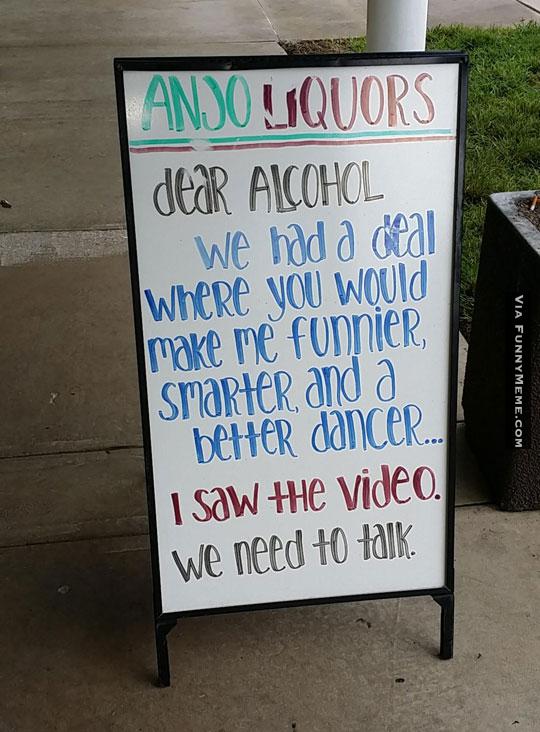 ANJO LIQUORS
dear ALCOHOL
we had a deal
where you would
make me funnier,
smarter, and a
better dancer...
I saw the video.
we need to talk.
VIA FUNNYMEME.COM